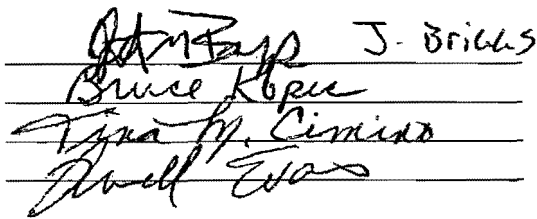 J. Briggs
Bruce Kopec
Tina M. Cimino
Evans